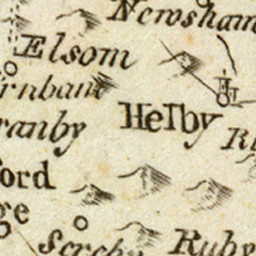 Newsham
Elsom
rnbam
ranby
Helby
ford
ge
Screby
Ruby